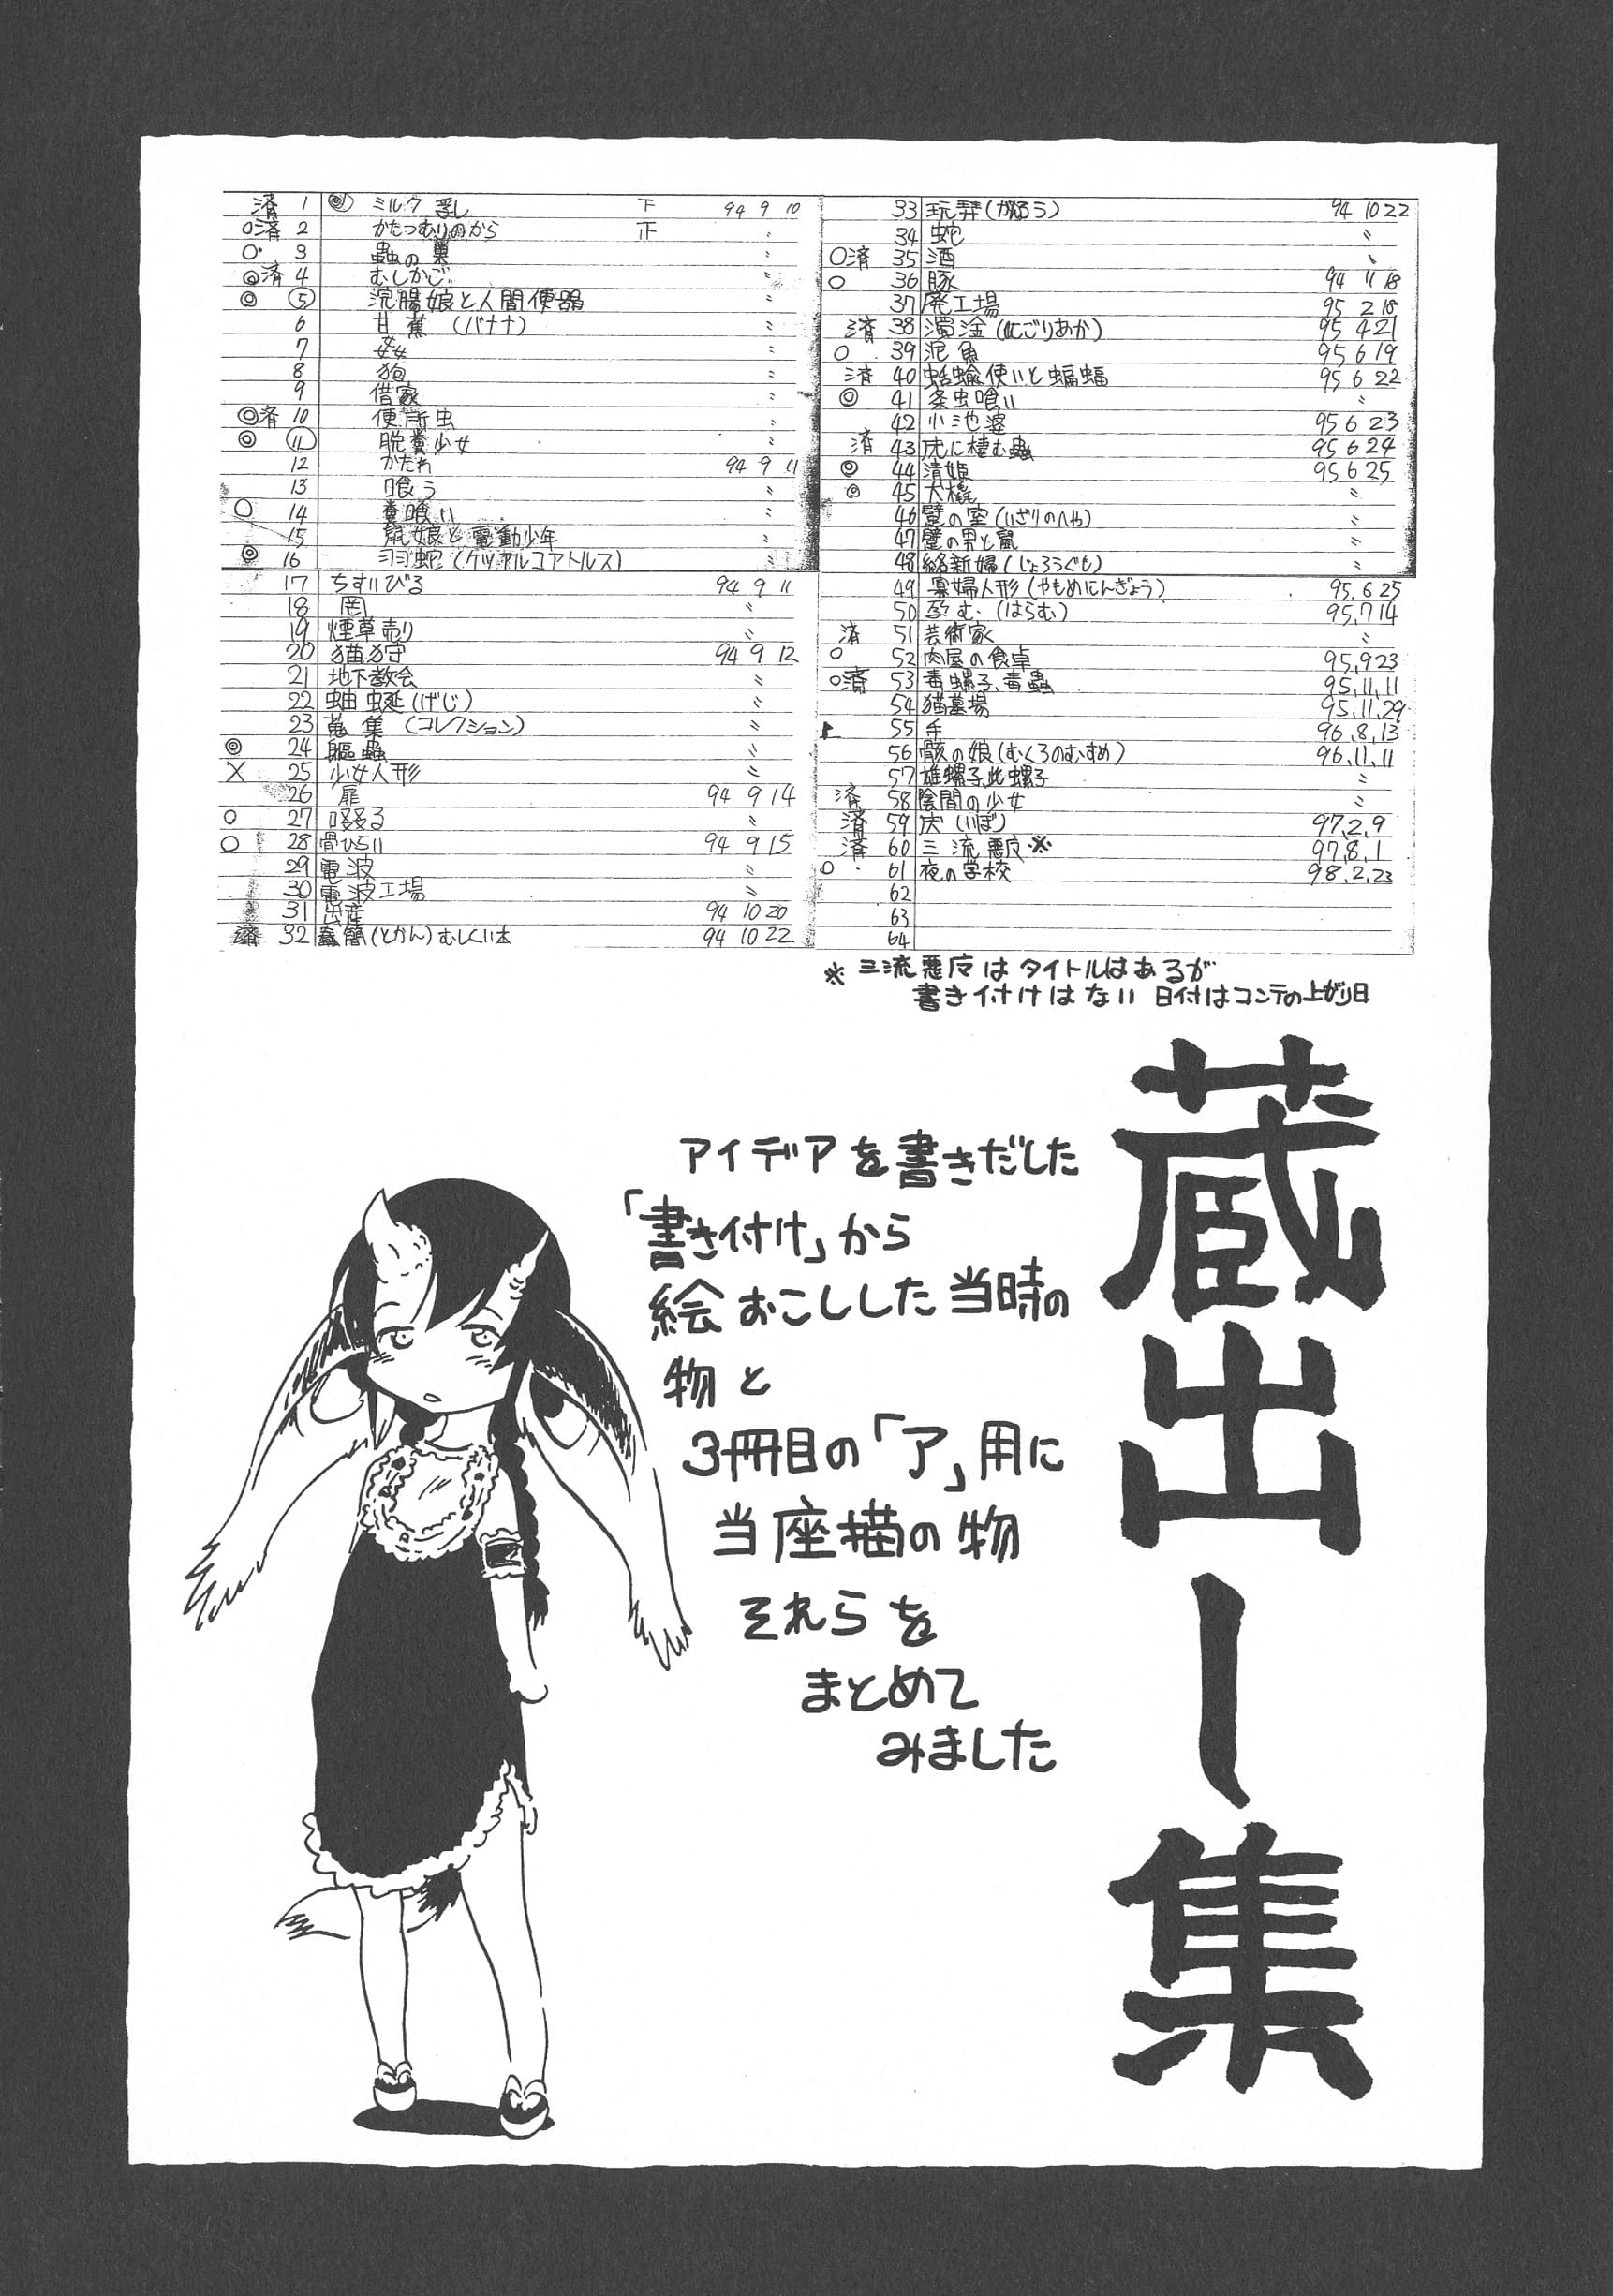 済 1 ◎ ミルク 乳し 下 94 9 10
○済 2 かたつむりのから 正 〃
○ 3 蟲の巣 〃
◎済 4 むしかご 〃
◎ ⑤ 浣腸娘と人間便器 〃
6 甘蕉 (バナナ) 〃
7 姦 〃
8 狗 〃
9 借家 〃
◎済 10 便所虫 〃
◎ ⑪ 脱糞少女 〃
12 かたわ 94 9 11
13 喰う 〃
○ 14 糞喰い 〃
15 鼠娘と電動少年 〃
◎ 16 羽蛇 (ケツァルコアトルス) 〃
17 ちすいびる 94 9 11
18 罔 〃
19 煙草売り 〃
20 猫狩 94 9 12
21 地下教会 〃
22 蚰蜒 (げじ) 〃
23 蒐集 (コレクション) 〃
◎ 24 軀蟲 〃
× 25 少女人形 〃
26 扉 94 9 14
○ 27 啜る 〃
○ 28 骨ひろい 94 9 15
29 電波 〃
30 電波工場 〃
31 出産 94 10 20
済 32 蠹簡 (とかん) むしくい本 94 10 22
33 玩弄 (がろう) 94 10 22
34 蛇 〃
○済 35 酒 〃
○ 36 豚 94 11 18
37 廃工場 95 2 18
済 38 濁淦 (にごりあか) 95 4 21
○ 39 泥魚 95 6 19
済 40 蛞蝓使いと蝙蝠 95 6 22
◎ 41 条虫喰い 〃
42 小池婆 95 6 23
済 43 虎に棲む蟲 95 6 24
◎ 44 清姫 95 6 25
◎ 45 犬橇 〃
46 躄の室 (いざりのへや) 〃
47 躄の男と鼠 〃
48 絡新婦 (じょろうぐも) 〃
49 寡婦人形 (やもめにんぎょう) 95.6 25
50 孕む (はらむ) 95.7 14
済 51 芸術家 〃
○ 52 肉屋の食卓 95.9 23
○済 53 毒螺子、毒蟲 95.11.11
54 猫墓場 95.11.29
上 55 手 96.8.13
56 骸の娘 (むくろのむすめ) 96.11.11
57 雄螺子 雌螺子 〃
済 58 陰間の少女 〃
済 59 疣 (いぼ) 97.2.9
済 60 三流悪皮※ 97.8.1
○ 61 夜の学校 98.2.23
62
63
64
※ 三流悪皮はタイトルはあるが
書き付けはない 日付はコンテの上がり日
蔵出し集
アイデアを書きだした
「書き付け」から
絵おこしした当時の
物と
3冊目の「ア」用に
当座描の物
それらを
まとめて
みました